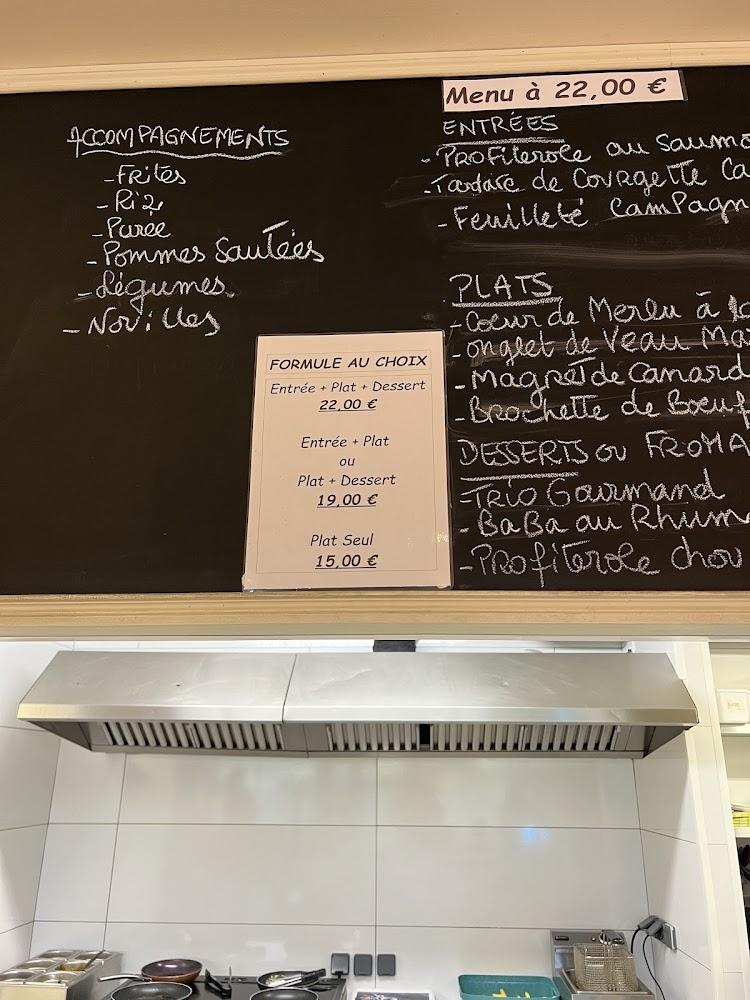 ACCOMPAGNEMENTS
- Frites
- Riz
- Puree
- Pommes Sautées
- Légumes
- Nouilles
FORMULE AU CHOIX
Entrée + Plat + Dessert
22,00 €
Entrée + Plat
ou
Plat + Dessert
19,00 €
Plat Seul
15,00 €
Menu à 22,00 €
ENTRÉES
- Profiterole au Saumo
- Tartare de Courgette Ca
- Feuilleté Campagn
PLATS
- Coeur de Merlu à la
- Onglet de Veau Ma
- Magret de Canard
- Brochette de Boeuf
DESSERTS ou FROMA
- Trio Gourmand
- BaBa au Rhum
- Profiterole chou